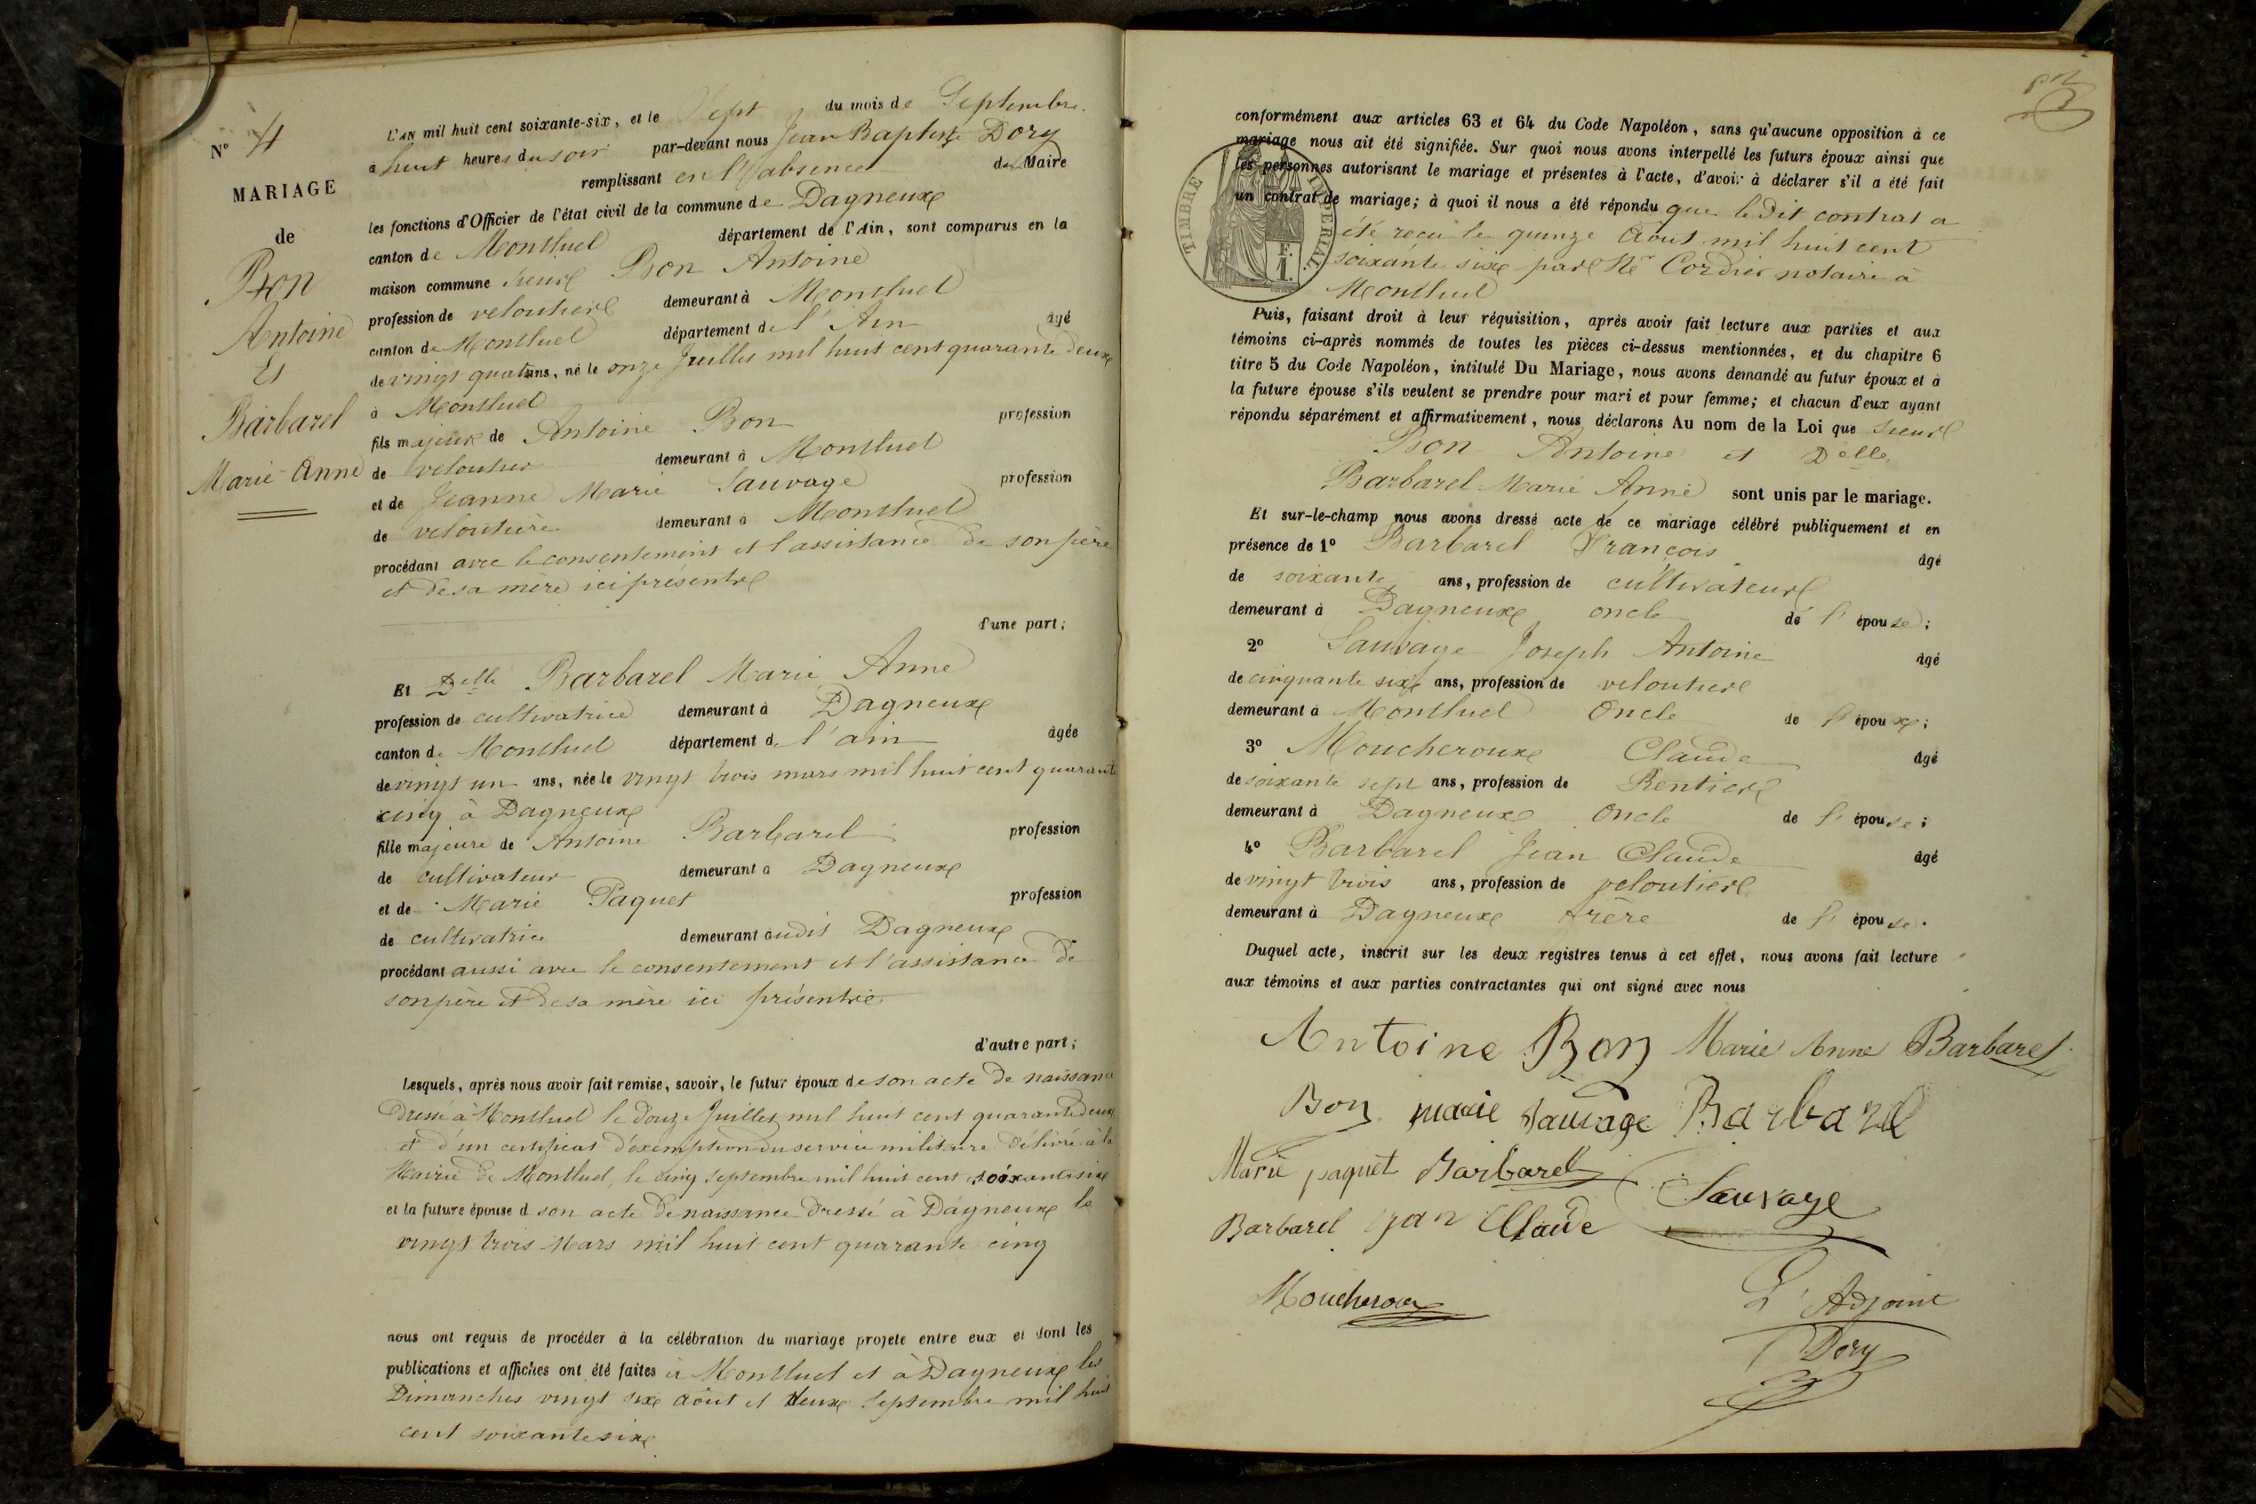 N° 4
MARIAGE
de
Bon
Antoine
Et
Barbarel
Marie Anne
L'AN mil huit cent soixante-six, et le Sept du mois de Septembre
à huit heures du soir par-devant nous Jean Baptiste Dory
remplissant en l'absence du Maire
les fonctions d'Officier de l'état civil de la commune de Dagneux
canton de Montluel département de l'Ain, sont comparus en la
maison commune sieur Bon Antoine
profession de veloutier demeurant à Montluel
canton de Montluel département de l'Ain âgé
de vingt quatre ans, né le onze Juillet mil huit cent quarante deux
à Montluel
fils majeur de Antoine Bon profession
de veloutier demeurant à Montluel
et de Jeanne Marie Sauvage profession
de veloutière demeurant à Montluel
procédant avec le consentement et l'assistance de son père
et de sa mère ici présents
d'une part;
Et Delle Barbarel Marie Anne
profession de cultivatrice demeurant à Dagneux
canton de Montluel département de l'ain âgée
de vingt un ans, née le vingt trois mars mil huit cent quarante
cinq à Dagneux
fille majeure de Antoine Barbarel profession
de cultivateur demeurant à Dagneux
et de Marie Paquet profession
de cultivatrice demeurant audit Dagneux
procédant aussi avec le consentement et l'assistance de
son père et de sa mère ici présents
d'autre part;
Lesquels, après nous avoir fait remise, savoir, le futur époux de son acte de naissance
dressé à Montluel le douze Juillet mil huit cent quarante deux
et d'un certificat d'exemption du service militaire délivré à la
Mairie de Montluel, le cinq septembre mil huit cent soixante six
et la future épouse d son acte de naissance dressé à Dagneux le
vingt trois Mars mil huit cent quarante cinq
nous ont requis de procéder à la célébration du mariage projeté entre eux et dont les
publications et affiches ont été faites à Montluel et à Dagneux les
Dimanches vingt six août et deux Septembre mil huit
cent soixante six
conformément aux articles 63 et 64 du Code Napoléon, sans qu'aucune opposition à ce
mariage nous ait été signifiée. Sur quoi nous avons interpellé les futurs époux ainsi que
les personnes autorisant le mariage et présentes à l'acte, d'avoir à déclarer s'il a été fait
un contrat de mariage; à quoi il nous a été répondu que le dit contrat a
été reçu le quinze Août mil huit cent
soixante six par Me Cordier notaire à
Montluel
TIMBRE IMPÉRIAL
F.
1.
Puis, faisant droit à leur réquisition, après avoir fait lecture aux parties et aux
témoins ci-après nommés de toutes les pièces ci-dessus mentionnées, et du chapitre 6
titre 5 du Code Napoléon, intitulé Du Mariage, nous avons demandé au futur époux et à
la future épouse s'ils veulent se prendre pour mari et pour femme; et chacun d'eux ayant
répondu séparément et affirmativement, nous déclarons Au nom de la Loi que sieur
Bon Antoine et Delle
Barbarel Marie Anne sont unis par le mariage.
Et sur-le-champ nous avons dressé acte de ce mariage célébré publiquement et en
présence de 1° Barbarel François âgé
de soixante ans, profession de cultivateur
demeurant à Dagneux oncle de l'épouse;
2° Sauvage Joseph Antoine âgé
de cinquante six ans, profession de veloutier
demeurant à Montluel Oncle de l'époux;
3° Moucheroux Claude âgé
de soixante sept ans, profession de Rentier
demeurant à Dagneux Oncle de l'épouse;
4° Barbarel Jean Claude âgé
de vingt trois ans, profession de veloutier
demeurant à Dagneux frère de l'épouse.
Duquel acte, inscrit sur les deux registres tenus à cet effet, nous avons fait lecture
aux témoins et aux parties contractantes qui ont signé avec nous
Antoine Bon Marie Anne Barbarel
Bon marie Sauvage Barbarel
Marie paquet Barbarel
Sauvage
Barbarel jean Claude
Moucheroux
L'Adjoint
Dory